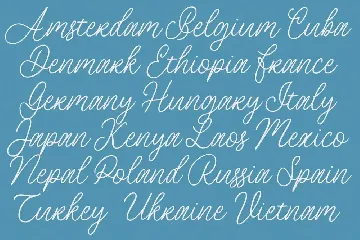 Amsterdam Belgium Cuba
Denmark Ethiopia France
Germany Hungary Italy
Japan Kenya Laos Mexico
Nepal Poland Russia Spain
Turkey Ukraine Vietnam